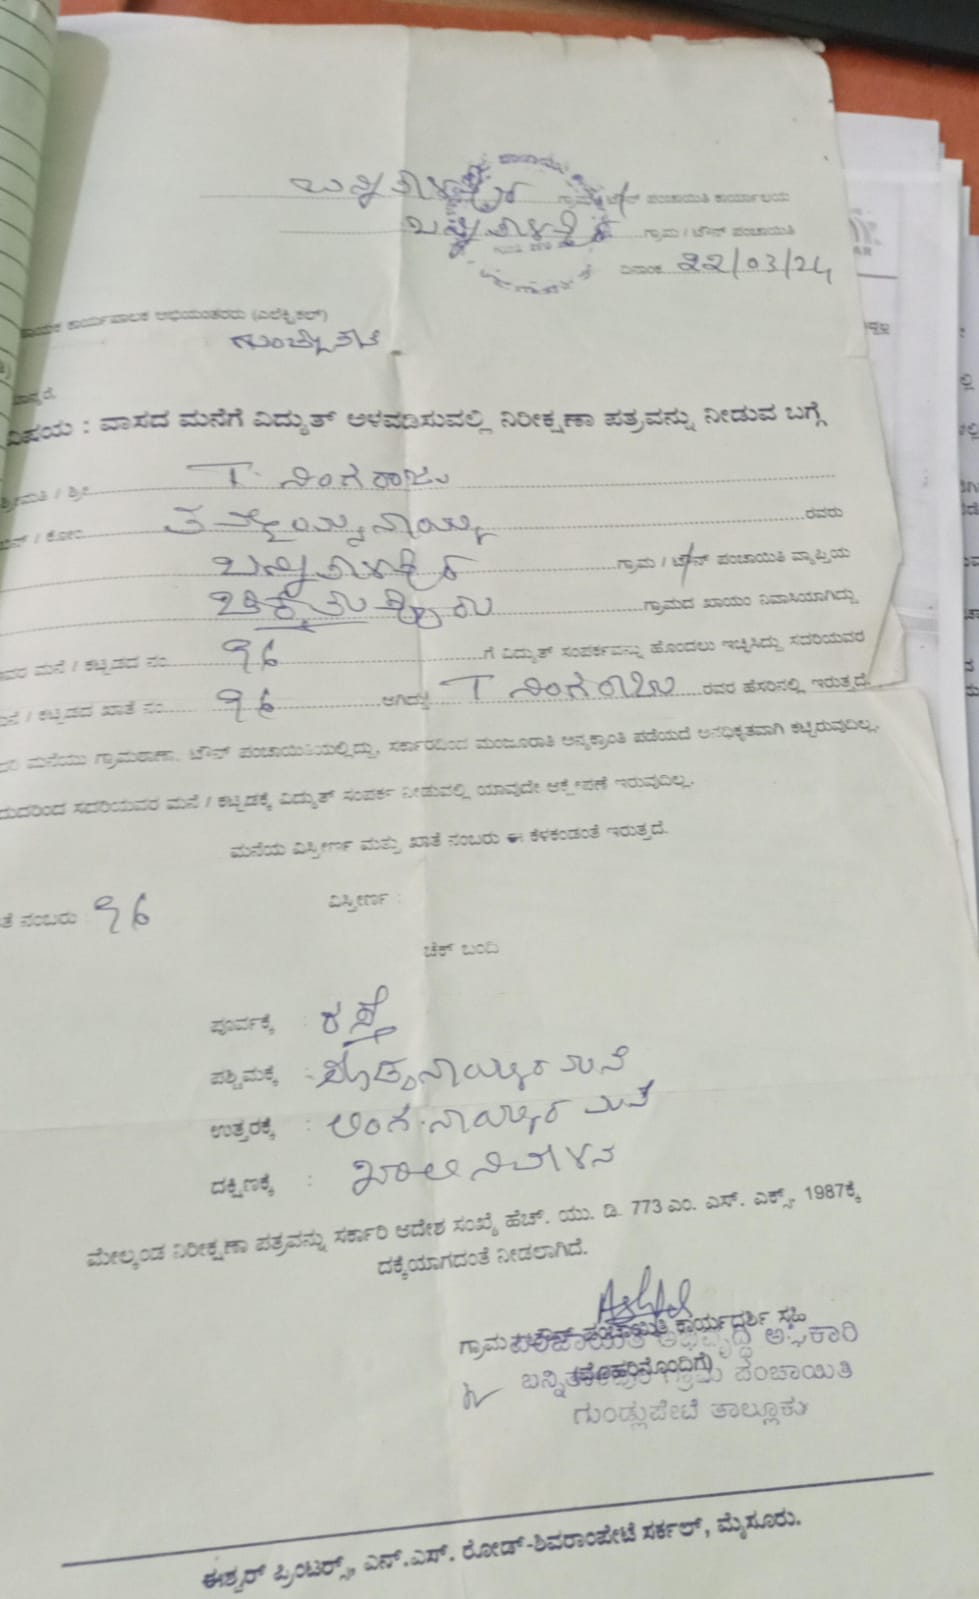 ಬನ್ನಿತಾಳಪುರ ಗ್ರಾಮ / ಟೌನ್ ಪಂಚಾಯಿತಿ ಕಾರ್ಯಾಲಯ
ಬನ್ನಿತಾಳಪುರ ಗ್ರಾಮ / ಟೌನ್ ಪಂಚಾಯಿತಿ
ದಿನಾಂಕ 22/03/24
ಕಾರ್ಯಪಾಲಕ ಅಭಿಯಂತರರು (ಎಲೆಕ್ಟ್ರಿಕಲ್)
ಗುಂಡ್ಲುಪೇಟೆ
ಮಾನ್ಯರೆ,
ವಿಷಯ : ವಾಸದ ಮನೆಗೆ ವಿದ್ಯುತ್ ಅಳವಡಿಸುವಲ್ಲಿ ನಿರೀಕ್ಷಣಾ ಪತ್ರವನ್ನು ನೀಡುವ ಬಗ್ಗೆ
ಶ್ರೀಮತಿ / ಶ್ರೀ T. ನಿಂಗರಾಜು
ಬಿನ್ / ಕೋಂ ರವರು
ಬನ್ನಿತಾಳಪುರ ಗ್ರಾಮ / ಟೌನ್ ಪಂಚಾಯಿತಿ ವ್ಯಾಪ್ತಿಯ
ಗ್ರಾಮದ ಖಾಯಂ ನಿವಾಸಿಯಾಗಿದ್ದು
ಮನೆ / ಕಟ್ಟಡದ ನಂ. 96 ಗೆ ವಿದ್ಯುತ್ ಸಂಪರ್ಕವನ್ನು ಹೊಂದಲು ಇಚ್ಛಿಸಿದ್ದು ಸದರಿಯವರ
ಮನೆ / ಕಟ್ಟಡದ ಖಾತೆ ನಂ. 96 ಆಗಿದ್ದು T ನಿಂಗರಾಜು ರವರ ಹೆಸರಿನಲ್ಲಿ ಇರುತ್ತದೆ.
ಮನೆಯು ಗ್ರಾಮಠಾಣಾ, ಟೌನ್ ಪಂಚಾಯಿತಿಯಲ್ಲಿದ್ದು, ಸರ್ಕಾರದಿಂದ ಮಂಜೂರಾತಿ ಅನ್ಯಕ್ರಾಂತಿ ಪಡೆಯದೆ ಅನಧಿಕೃತವಾಗಿ ಕಟ್ಟಿರುವುದಿಲ್ಲ.
ಸದರಿಯವರ ಮನೆ / ಕಟ್ಟಡಕ್ಕೆ ವಿದ್ಯುತ್ ಸಂಪರ್ಕ ನೀಡುವಲ್ಲಿ ಯಾವುದೇ ಆಕ್ಷೇಪಣೆ ಇರುವುದಿಲ್ಲ.
ಮನೆಯ ವಿಸ್ತೀರ್ಣ ಮತ್ತು ಖಾತೆ ನಂಬರು ಈ ಕೆಳಕಂಡಂತೆ ಇರುತ್ತದೆ.
ನಂಬರು 96 ವಿಸ್ತೀರ್ಣ :
ಚೆಕ್ ಬಂದಿ
ಪೂರ್ವಕ್ಕೆ : ರಸ್ತೆ
ಪಶ್ಚಿಮಕ್ಕೆ : ನಾಯ್ಕರ ಮನೆ
ಉತ್ತರಕ್ಕೆ : ಲಿಂಗನಾಯ್ಕರ ಮನೆ
ದಕ್ಷಿಣಕ್ಕೆ : ಖಾಲಿ ನಿವೇಶನ
ಮೇಲ್ಕಂಡ ನಿರೀಕ್ಷಣಾ ಪತ್ರವನ್ನು ಸರ್ಕಾರಿ ಆದೇಶ ಸಂಖ್ಯೆ ಹೆಚ್. ಯು. ಡಿ. 773 ಎಂ. ಎಸ್. ಎಕ್ಸ್. 1987ಕ್ಕೆ
ದಕ್ಕೆಯಾಗದಂತೆ ನೀಡಲಾಗಿದೆ.
ಗ್ರಾಮ ಪಂಚಾಯಿತಿ ಕಾರ್ಯದರ್ಶಿ ಸಹಿ
ಪಂಚಾಯಿತಿ ಅಭಿವೃದ್ಧಿ ಅಧಿಕಾರಿ
(ಮೊಹರಿನೊಂದಿಗೆ)
ಬನ್ನಿತಾಳಪುರ ಗ್ರಾಮ ಪಂಚಾಯಿತಿ
ಗುಂಡ್ಲುಪೇಟೆ ತಾಲ್ಲೂಕು
ಈಶ್ವರ್ ಪ್ರಿಂಟರ್ಸ್, ಎನ್.ಎಸ್. ರೋಡ್-ಶಿವರಾಂಪೇಟೆ ಸರ್ಕಲ್, ಮೈಸೂರು.